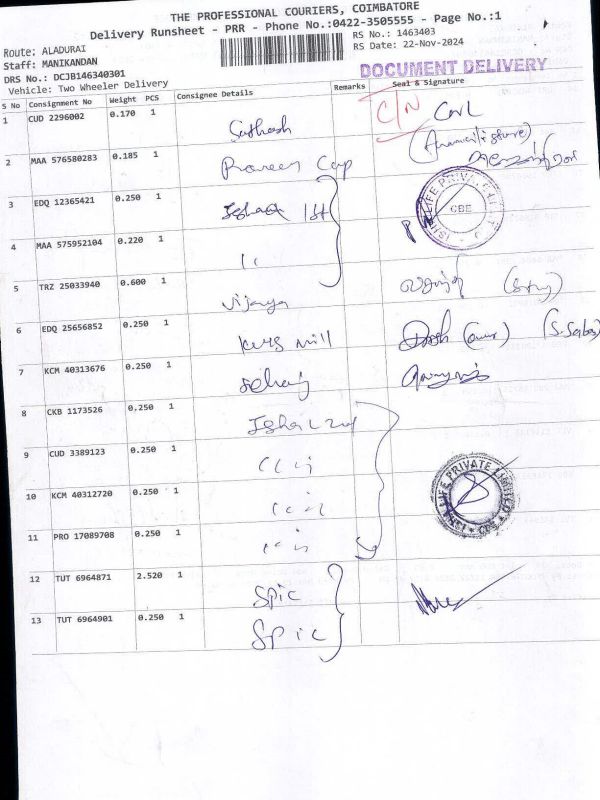 THE PROFESSIONAL COURIERS, COIMBATORE
Delivery Runsheet - PRR - Phone No.:0422-3505555 - Page No.:1
Route: ALADURAI
RS No.: 1463403
Staff: MANIKANDAN
RS Date: 22-Nov-2024
DRS No.: DCJB146340301
DOCUMENT DELIVERY
Vehicle: Two Wheeler Delivery
S No Consignment No Weight PCS Consignee Details Remarks Seal & Signature
1 CUD 2296002 0.170 1 Sathosh C/N
2 MAA 576580283 0.185 1 Praveen Cap
3 EDQ 12365421 0.250 1 Isha 1st
4 MAA 575952104 0.220 1 ''
5 TRZ 25033940 0.600 1 Vijaya
6 EDQ 25656852 0.250 1 mill
7 KCM 40313676 0.250 1
8 CKB 1173526 0.250 1 Isha 2nd
9 CUD 3389123 0.250 1
10 KCM 40312720 0.250 1
ISHA LIFE PRIVATE LIMITED CBE
11 PRO 17089708 0.250 1
12 TUT 6964871 2.520 1 Spic
13 TUT 6964901 0.250 1 Spic